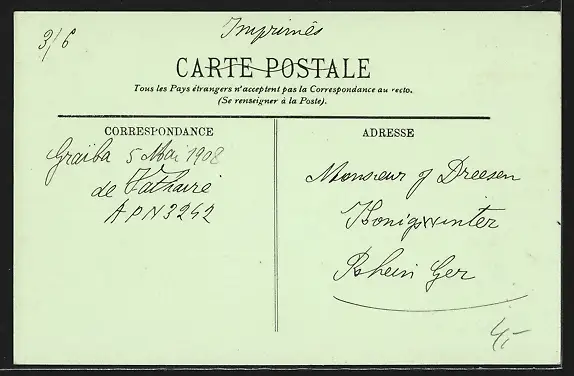 3/6
Imprimés
CARTE POSTALE
Tous les Pays étrangers n'acceptent pas la Correspondance au recto.
(Se renseigner à la Poste).
CORRESPONDANCE
Graïba 5 Mai 1908
de Fathairé
APN3242
ADRESSE
Monsieur J Dreesen
Konigswinter
Rhein Ger
4,-